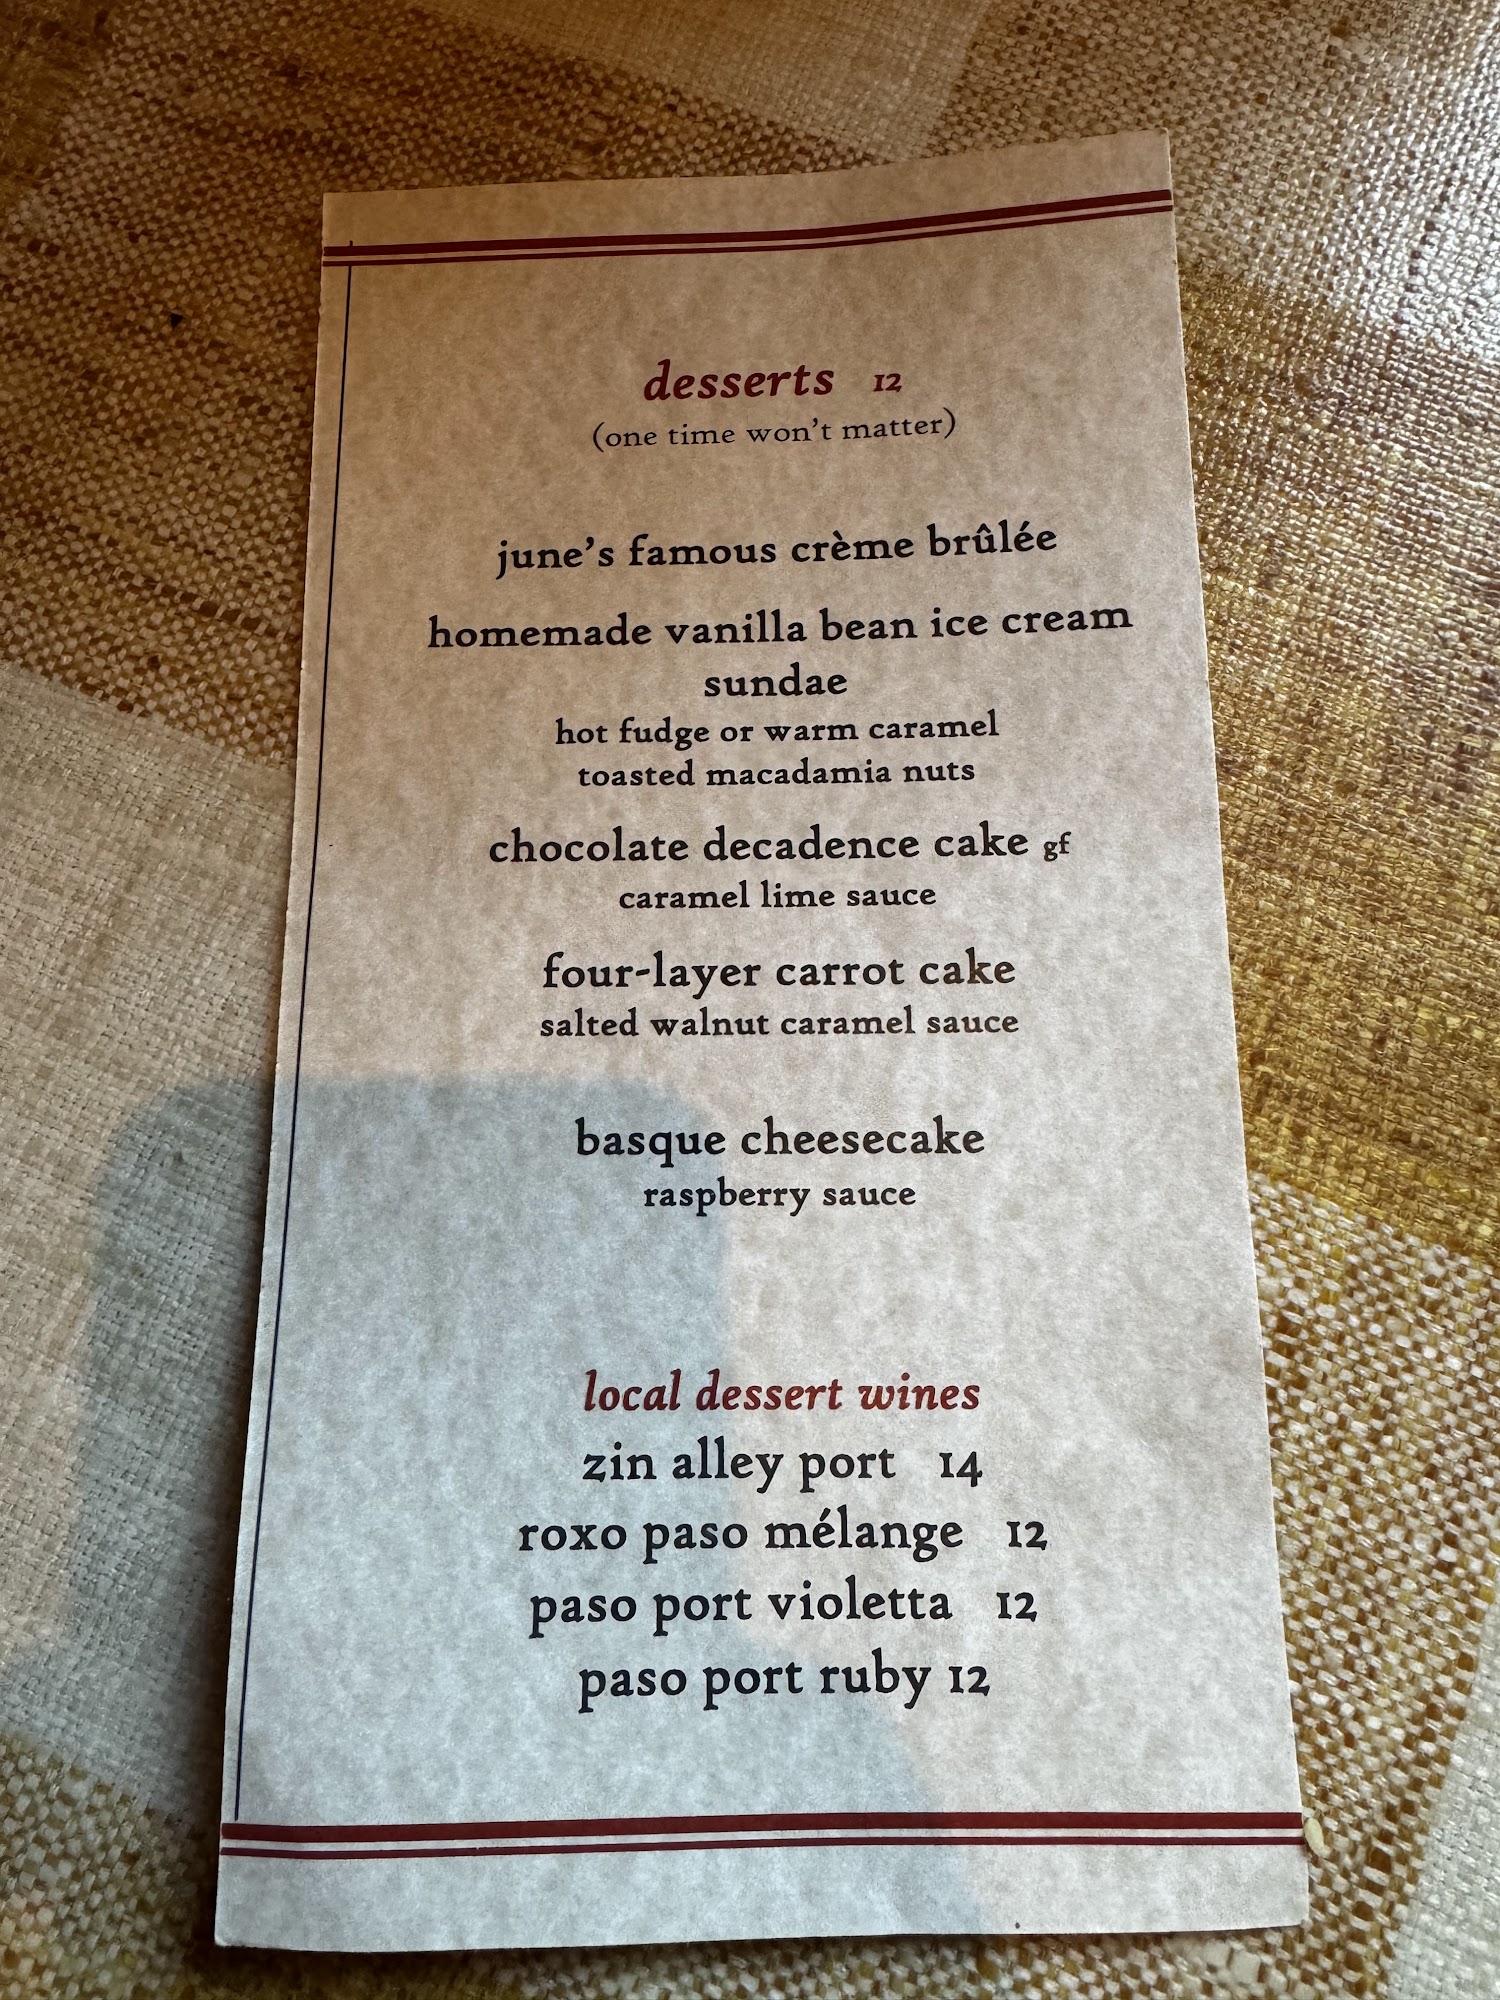 desserts 12
(one time won't matter)
june's famous crème brûlée
homemade vanilla bean ice cream
sundae
hot fudge or warm caramel
toasted macadamia nuts
chocolate decadence cake gf
caramel lime sauce
four-layer carrot cake
salted walnut caramel sauce
basque cheesecake
raspberry sauce
local dessert wines
zin alley port 14
roxo paso mélange 12
paso port violetta 12
paso port ruby 12